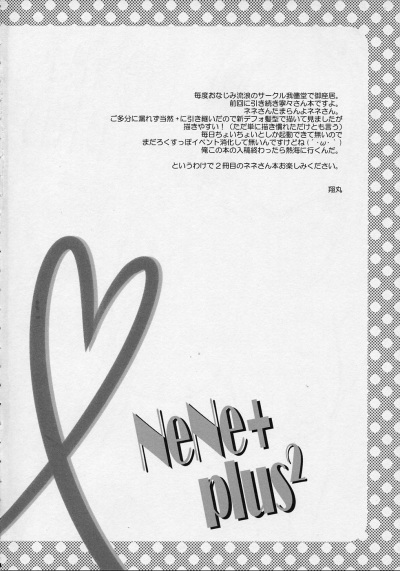 毎度おなじみ流浪のサークル我儘堂で御座居。
前回に引き続き寧々さん本ですよ。
ネネさんたまらんよネネさん。
ご多分に漏れず当然＋に引き継いだので新デフォ髪型で描いて見ましたが
描きやすい！（ただ単に描き慣れただけとも言う）
毎日ちょいちょいとしか起動できて無いので
まだろくすっぽイベント消化して無いんですけどね(´・ω・｀)
俺この本の入稿終わったら熱海に行くんだ。
というわけで２冊目のネネさん本お楽しみください。
翔丸
NeNe+
plus²